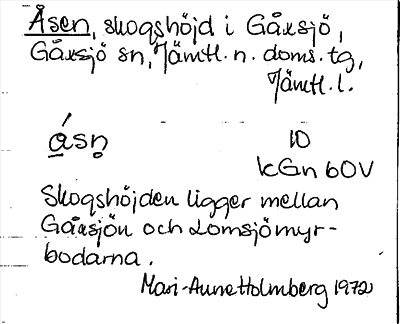 Åsen, skogshöjd i Gåxsjö,
Gåxsjö sn, Jämtl. n. doms. tg,
Jämtl. l.
ásn̥ 10
kGn 60V
Skogshöjden ligger mellan
Gåxsjön och Lomsjömyr-
bodarna.
Mari-Anne Holmberg 1972